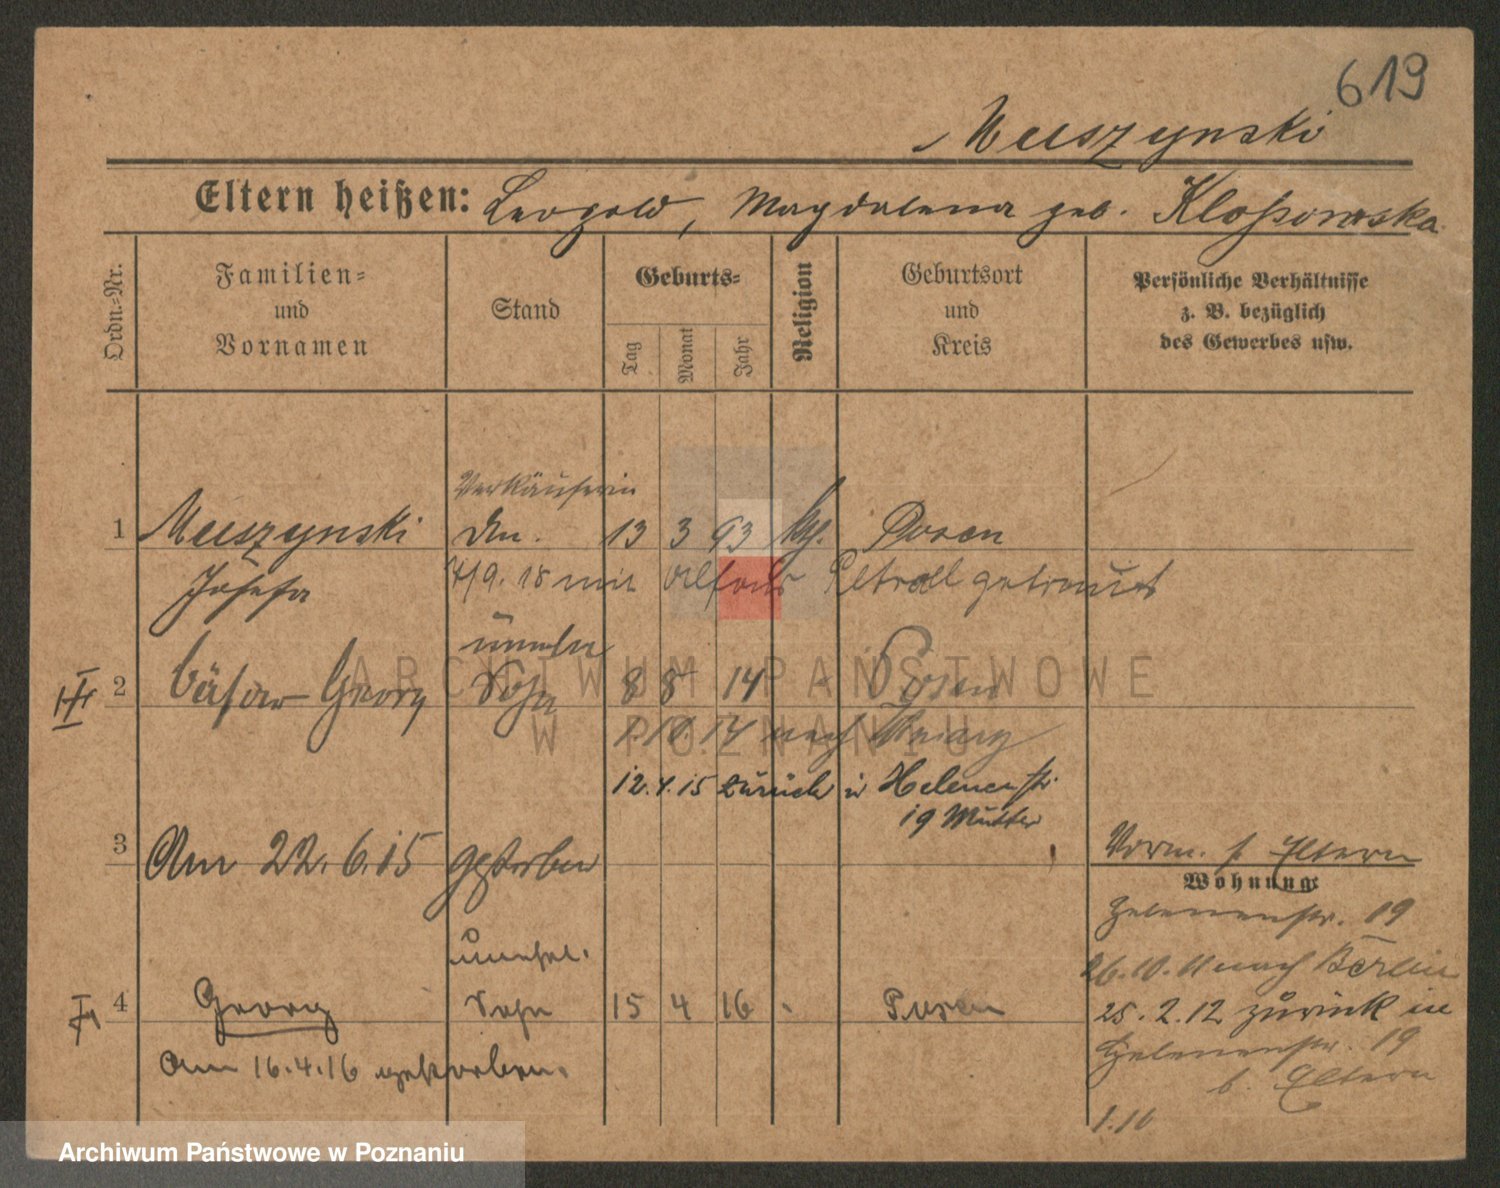 619
Muszynski
Eltern heißen: Leopold, Magdalena geb. Klossowska
Ordn.=Nr.
Familien= und Vornamen
Stand
Geburts=
Tag
Monat
Jahr
Religion
Geburtsort und Kreis
Persönliche Verhältnisse z. B. bezüglich des Gewerbes usw.
Verkäuferin
1 Muszynski 13 3 93 kth. Posen
Josefa 7/9. 18 mit getraut
unehel
2 Georg Sohn 8 8 14 Posen
1.10.14 nach
12.4.15 zurück in Helenenstr.
19 Mutter
3 Am 22.6.15 gestorben
Vorm. s. Eltern
Wohnung
Helenenstr. 19
26.10.11 nach Berlin
unehel.
4 Georg Sohn 15 4 16 Posen
25.2.12 zurück in
Helenenstr. 19
Am 16.4.16 gestorben.
b. Eltern
ARCHIWUM PAŃSTWOWE
W POZNANIU
Archiwum Państwowe w Poznaniu